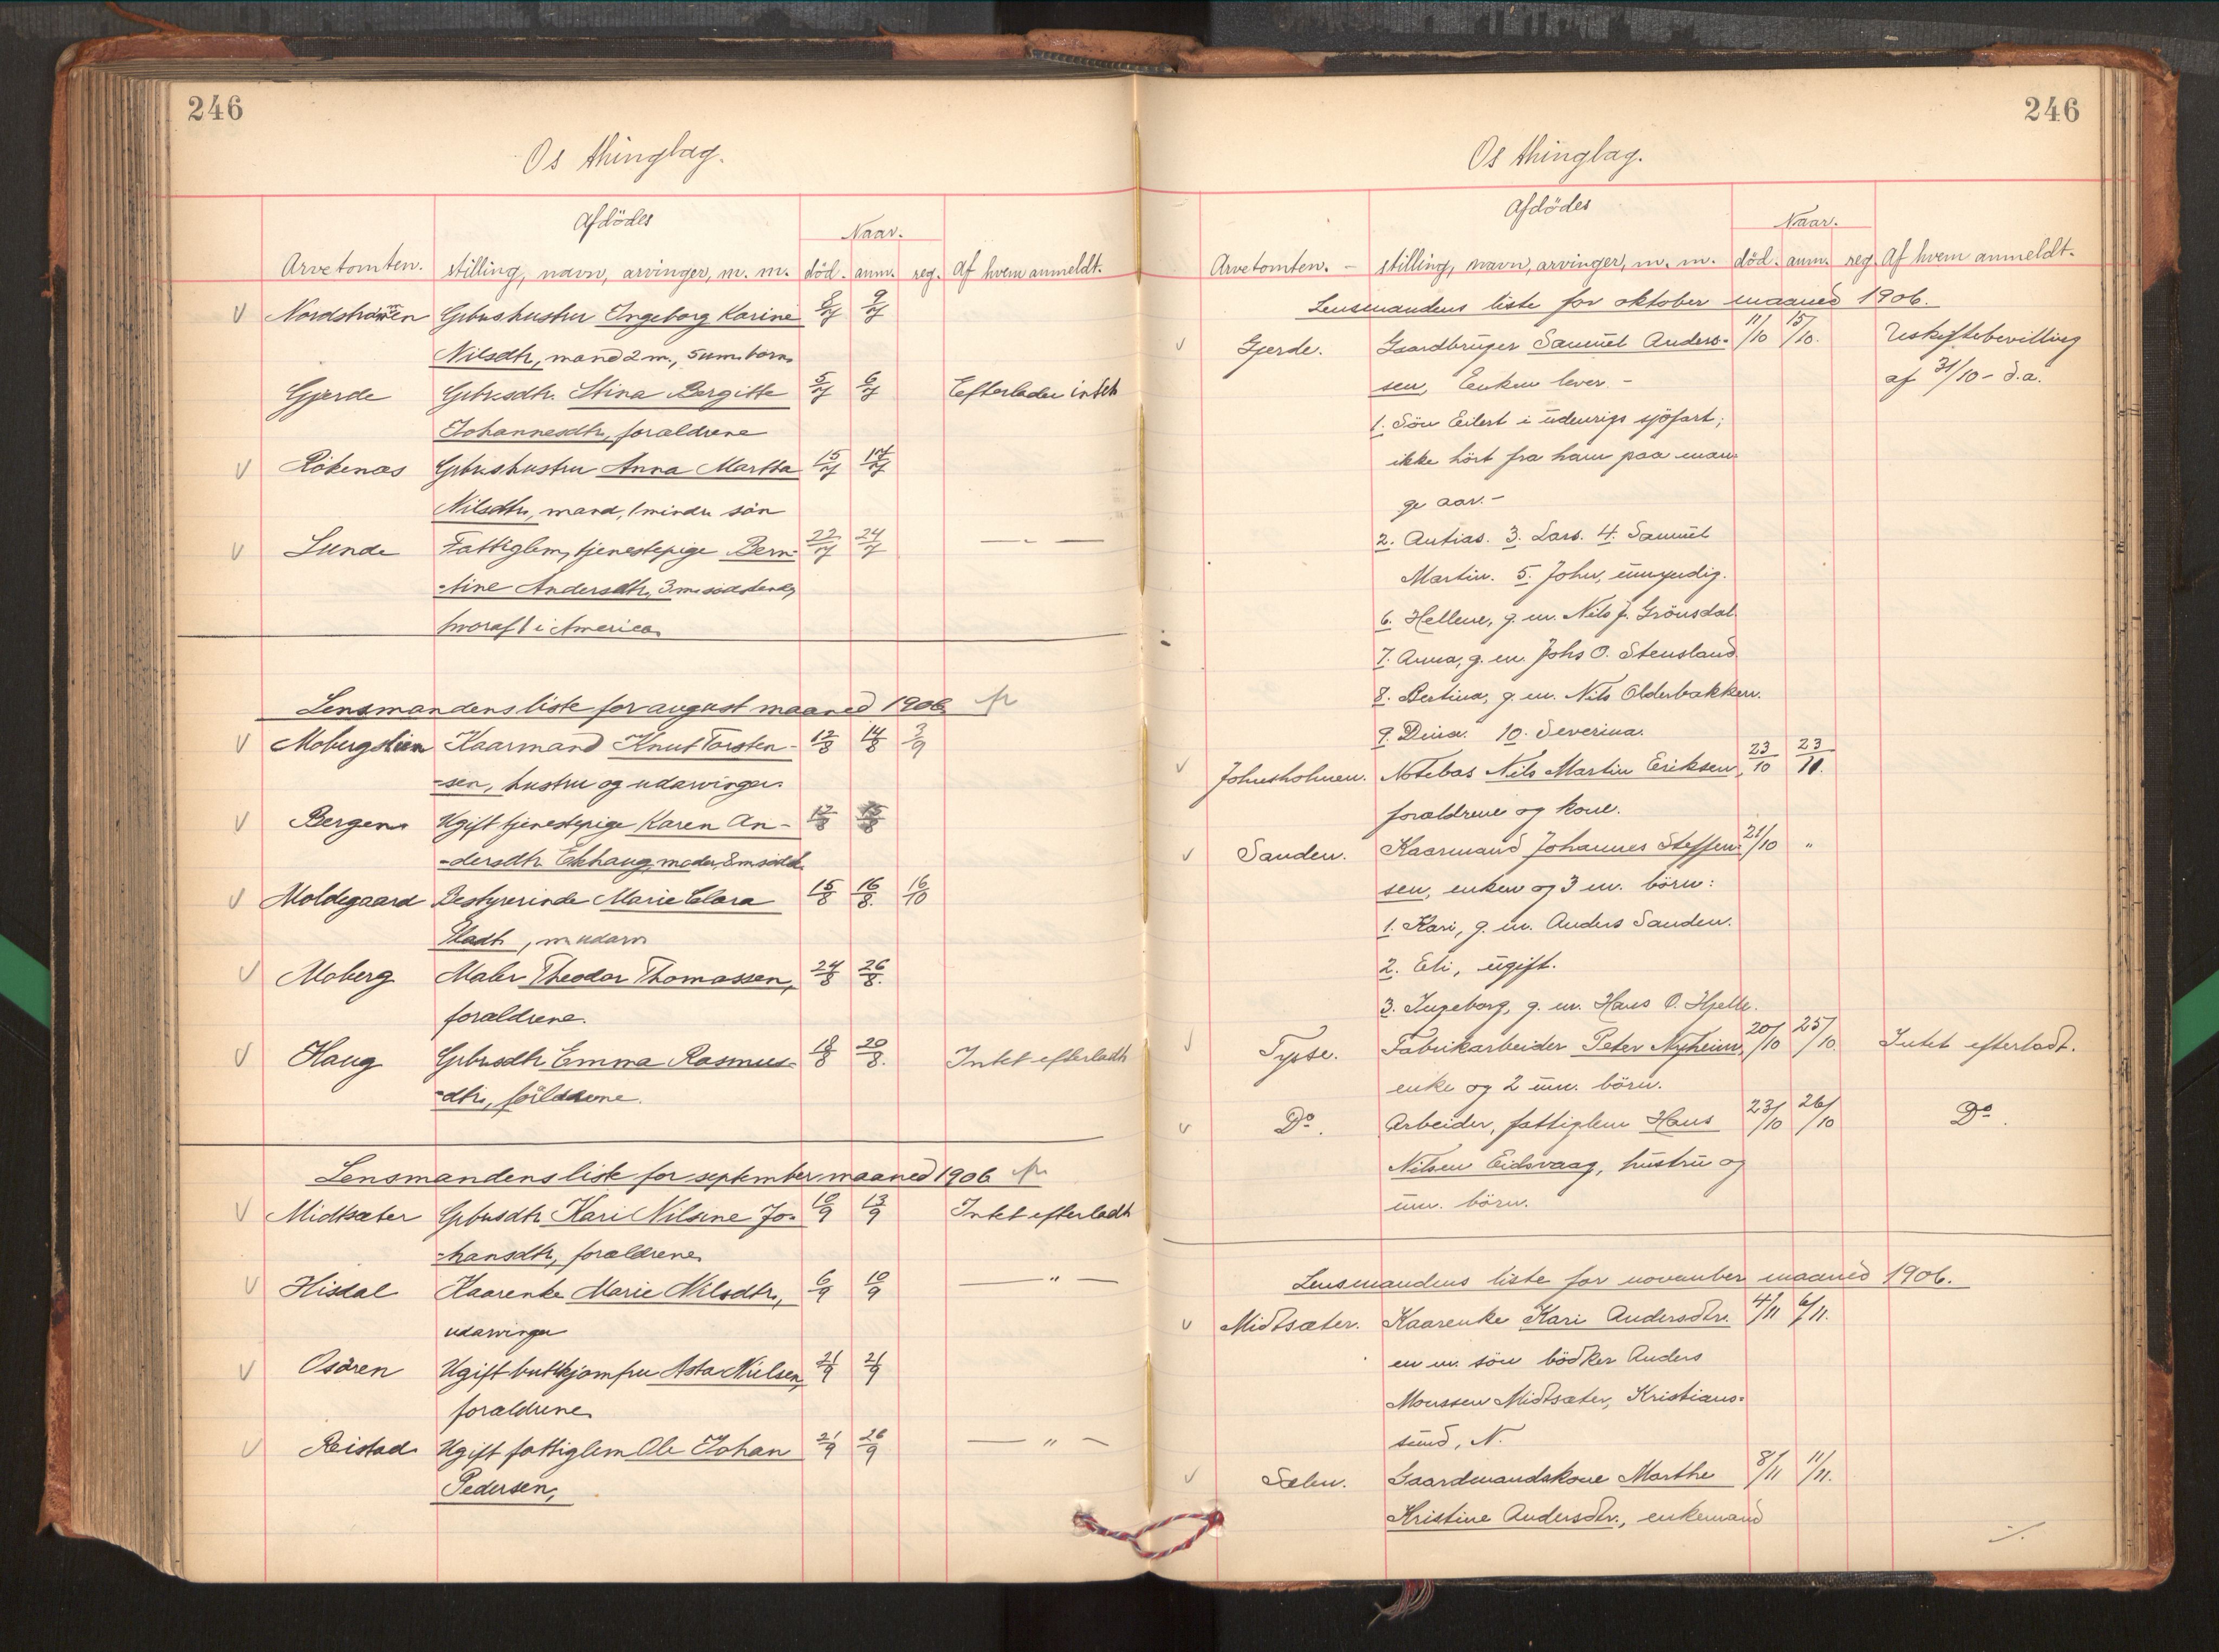 246
Os thinglag.
Afdödes
Naar.
Arvetomten. stilling, navn, arvinger, m. m. död. anm. reg. Af hvem anmeldt.
V Nordstrømmen Gbrushustru Ingeborg Karine 8/7 9/7
Nilsdtr, mand 2 m., 5 um. børn
Gjerde Gbrusdtr. Stina Bergitte 5/7 6/7 Efterlader intet
Johannesdtr, forældrene
V Røkenæs Gbrushustru Anna Martha 15/7 17/7
Nilsdtr, mand, 1 mindr. søn
V Lunde Fattiglem, tjenestepige Bern- 22/7 24/7 — " —
-tine Andersdtr, 3 m. sødskende,
hvoraf 1 i America
Lensmandens liste for august maaned 1906.
V Mobergslien Kaarmand Knut Torsten- 12/8 14/8 3/9
-sen, hustru og udarvinger.
V Bergen Ugift tjenestepige Karen An- 12/8 15/8
-dersdtr Ekhaug, moder, 8 m sødsk.
V Moldegaard Bestyrerinde Marie Clara 15/8 16/8. 16/10
, m udarv
V Moberg Maler Theodor Thomassen, 24/8 26/8.
forældrene.
V Haug Gbrusdtr Emma Rasmus- 18/8 20/8. Intet efterladt
-dtr, förldrene.
Lensmandens liste for september maaned 1906
V Midtsæter Gbrusdtr Kari Nilsine Jo- 10/9 13/9 Intet efterladt
-hansdtr, forældrene
V Hisdal Kaarenke Marie Nilsdtr, 6/9 10/9 — " —
udarvinger
V Osören Ugift butikjomfru Asta Nielsen, 21/9 21/9
forældrene
V Reistad Ugift fattiglem Ole Johan 21/9 26/9 — " —
Pedersen,
246
Os thinglag.
Afdödes
Naar.
Arvetomten. — stilling, navn, arvinger, m. m. död. anm. reg. Af hvem anmeldt.
Lensmandens liste for oktober maaned 1906.
V Gjerde. Gaardbruger Samuel Anders- 11/10 15/10. Uskiftebevilling
sen, Enken lever. — af 31/10 - d.a.
1. Sön Eilert i udenrigs sjöfart;
ikke hört fra ham paa man-
ge aar. —
2. Antias. 3. Lars. 4. Samuel
Martin. 5. John, umyndig.
6. Hellene, g. m. Nils J. Grönsdal.
7. Anna, g. m. Johs O. Stensland.
8. Bertina, g. m. Nils Olderbakken.
9. Dina. 10. Severina.
V Johnsholmen. Notebas Nils Martin Eriksen, 23/10 23/10.
forældrene og kone.
V Sanden. Kaarmand Johannes Steffen- 21/10 "
sen, enken og 3 m. börn:
1. Kari, g. m. Anders Sanden.
2. Eli, ugift.
3. Ingeborg, g. m. Hans O. Hjelle.
V Tysse. Fabrikarbeider Peter Nyheim, 20/10 25/10. Intet efterladt.
enke og 2 um. börn.
V Do. Arbeider, fattiglem Hans 23/10 26/10 Do.
Nilsen Eidsvaag, hustru og
um. börn.
Lensmandens liste for november maaned 1906.
V Midtsæter. Kaarenke Kari Andersdtr. 4/11 6/11.
en m. sön bödker Anders
Monssen Midtsæter, Kristians-
sund, N.
V Sælen. Gaardmandskone Marthe 8/11 11/11.
Kristine Andersdtr., enkemand
./.